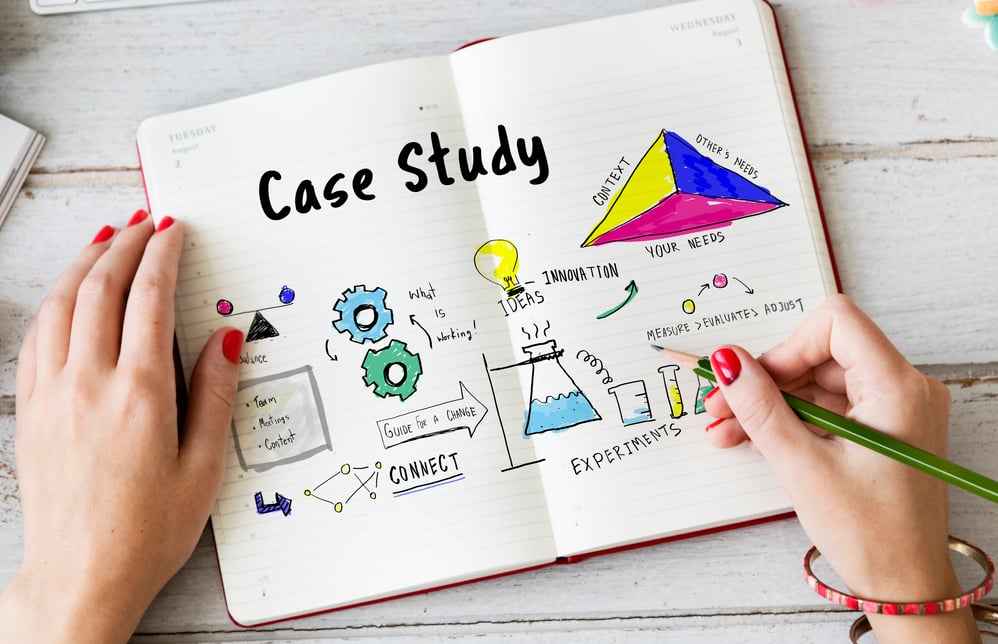 TUESDAY
August
2
WEDNESDAY
August
3
Case Study
CONTEXT
OTHER'S NEEDS
YOUR NEEDS
IDEAS
INNOVATION
What
is
working!
MEASURE > EVALUATE > ADJUST
balance
• Team
• Meetings
• Content
GUIDE FOR A CHANGE
CONNECT
EXPERIMENTS